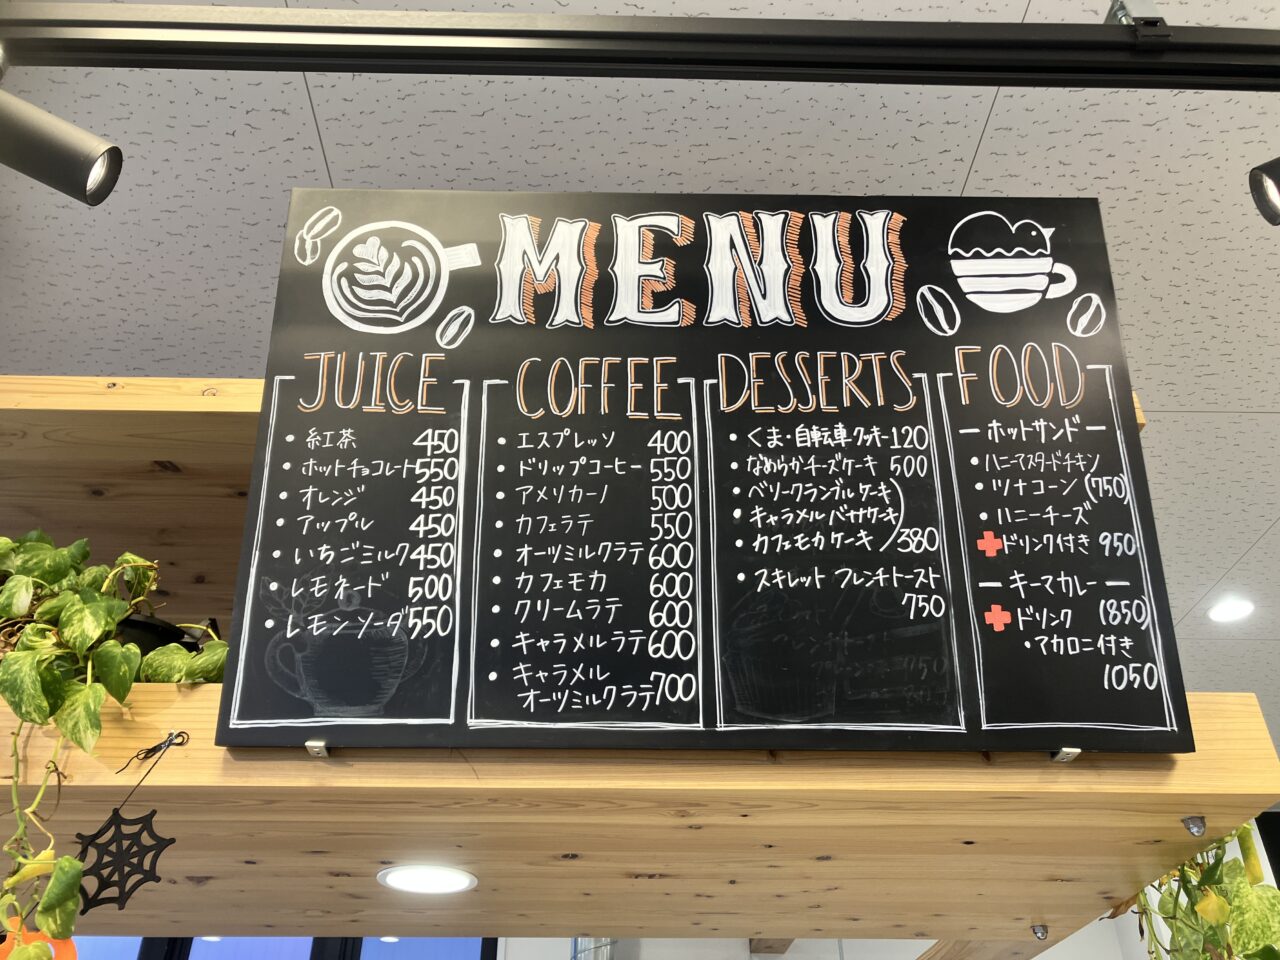 MENU
JUICE
・紅茶 450
・ホットチョコレート 550
・オレンジ 450
・アップル 450
・いちごミルク 450
・レモネード 500
・レモンソーダ 550
COFFEE
・エスプレッソ 400
・ドリップコーヒー 550
・アメリカーノ 500
・カフェラテ 550
・オーツミルクラテ 600
・カフェモカ 600
・クリームラテ 600
・キャラメルラテ 600
・キャラメル
オーツミルクラテ 700
DESSERTS
・くま・自転車クッキー 120
・なめらかチーズケーキ 500
・ベリークランブルケーキ
・キャラメルバナナケーキ
・カフェモカケーキ / 380
・スキレット フレンチトースト
750
FOOD
ーホットサンドー
・ハニーマスタードチキン
・ツナコーン (750)
・ハニーチーズ
+ドリンク付き 950
ーキーマカレーー
+ドリンク (850)
・マカロニ付き
1050